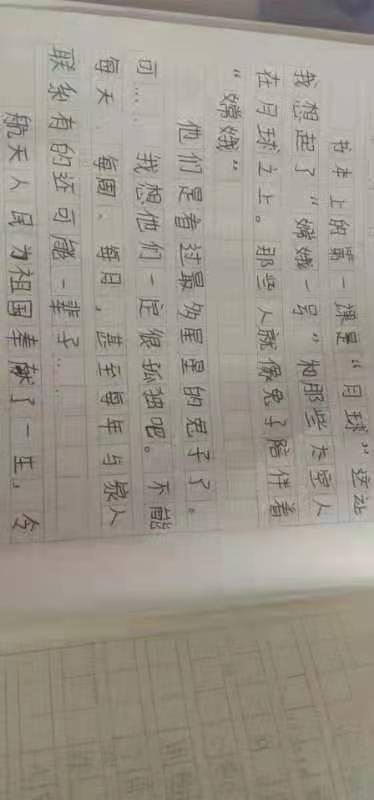 书本上的第一课是“月球”这让
我想起了“嫦娥一号”和那些太空人
在月球之上。那些人就像兔子陪伴着
“嫦娥”
他们是看过最多星星的兔子了。
可…… 我想他们一定很孤独吧。不能
每天、每周、每月,甚至每年与家人
联系有的还可能一辈子……
航天人员为祖国奉献了一生,今